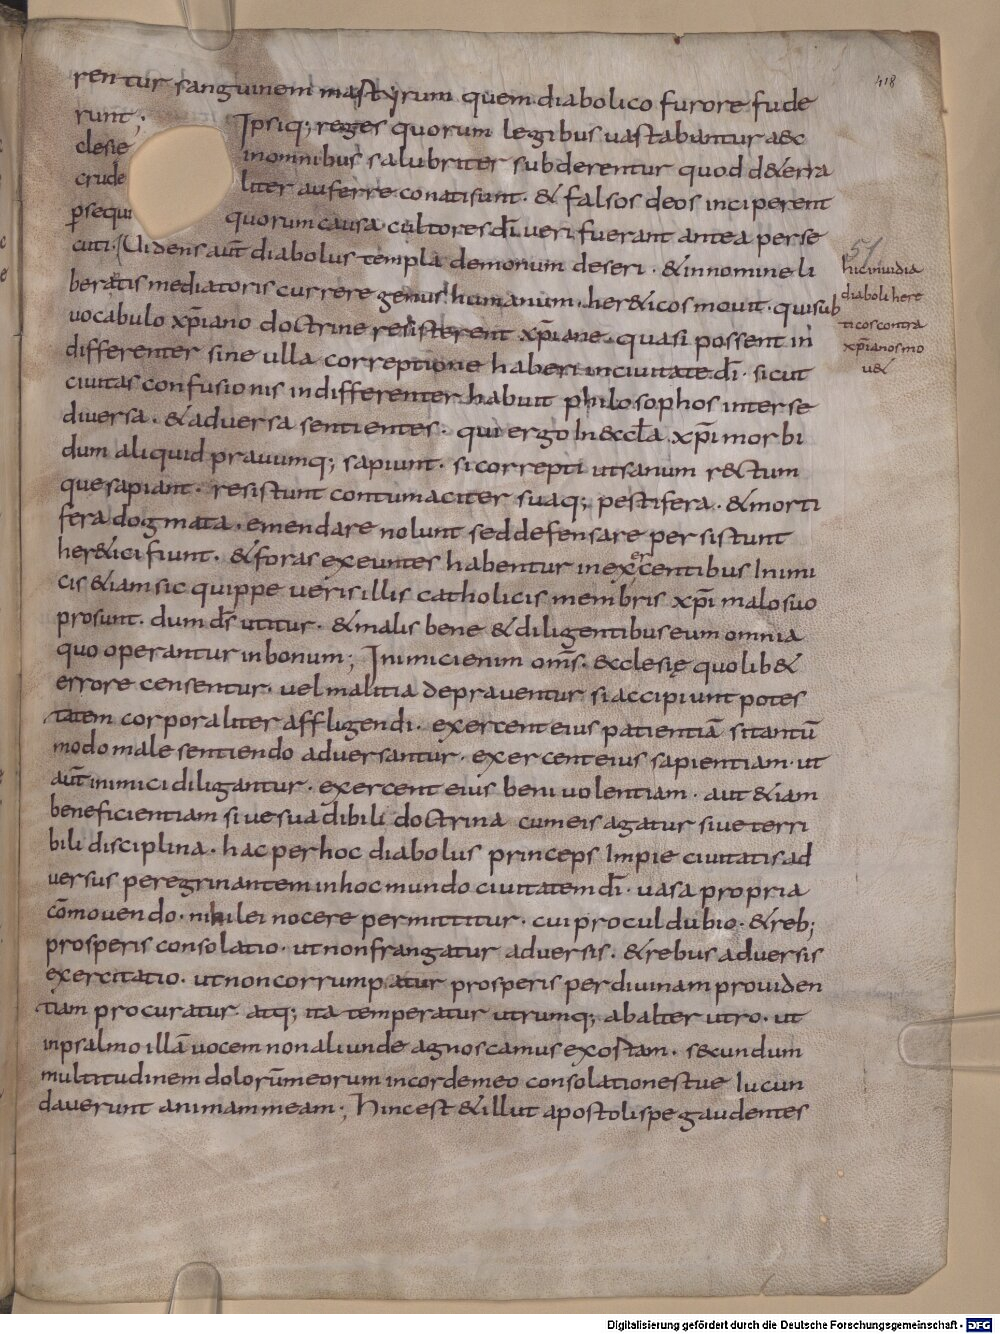 418
rentur sanguinem martyrum quem diabolico furore fude
runt; Ipsiq; reges quorum legibus uastabantur aec
clesie inomnibus salubriter subderentur quod d&erra
crude liter auferre conatisunt · & falsos deos inciperent
p̱sequi quorum causa cultores dī ueri fuerant antea perse
cuti · Uidens aūt diabolus templa demonum deseri · & innomine li
beratis mediatoris currere genus humanum · her&icos mouit · quisub
uocabulo xp̄iano doctrine resisterent xp̄iane · quasi possent in
differenter sine ulla correptione haberi inciuitate dī · sicut
ciuitas confusionis indifferenter habuit philosophos interse
diuersa · & aduersa sentientes · qui ergo In&cc̄la xp̄i morbi
dum aliquid prauumq; sapiunt · si correpti utsanum rectum
quesapiant · resistunt contumaciter suaq; pestifera · & morti
fera dogmata · emendare nolunt sed defensare persistunt
her&ici fiunt · & foras exeuntes habentur inexercentibus Inimi
cis &iam sic quippe ueris illis catholicis membris xp̄i malo suo
prosunt · dum dūs utitur · & malis bene & diligentibus eum omnia
quo operantur inbonum; Inimici enim om̄s · ecclesię quolib&
errore censentur · uel malitia deprauentur si accipiunt potes
tatem corporaliter affligendi · exercent eius patientiā sitantū
modo male sentiendo aduersantur · exercent eius sapientiam · ut
aūt inimici diligantur · exercent eius beniuolentiam · aut &iam
beneficientiam siue suadibili doctrina cumeis agatur siue terri
bili disciplina · hac perhoc diabolus princeps Impie ciuitatis ad
uersus peregrinantem inhoc mundo ciuitatem dī · uasa propria
cōmouendo · nihilei nocere permittitur · cui procul dubio · & reb;
prosperis consolatio · ut nonfrangatur aduersis · & rebus aduersis
exercitatio · ut noncorrumpatur prosperis per diuinam prouiden
tiam procuratur atq; ita temperatur utrumq; abalter utro · ut
inpsalmo illā uocem non aliunde agnoscamus exostam · secundum
multitudinem dolorūmeorum incordemeo consolationestue Iucun
dauerunt animammeam; hincest & illut apostoli spe gaudentes
51
hic inuidia
diaboli here
ticos contra
xp̄ianos mo
u&
Digitalisierung gefördert durch die Deutsche Forschungsgemeinschaft - DFG